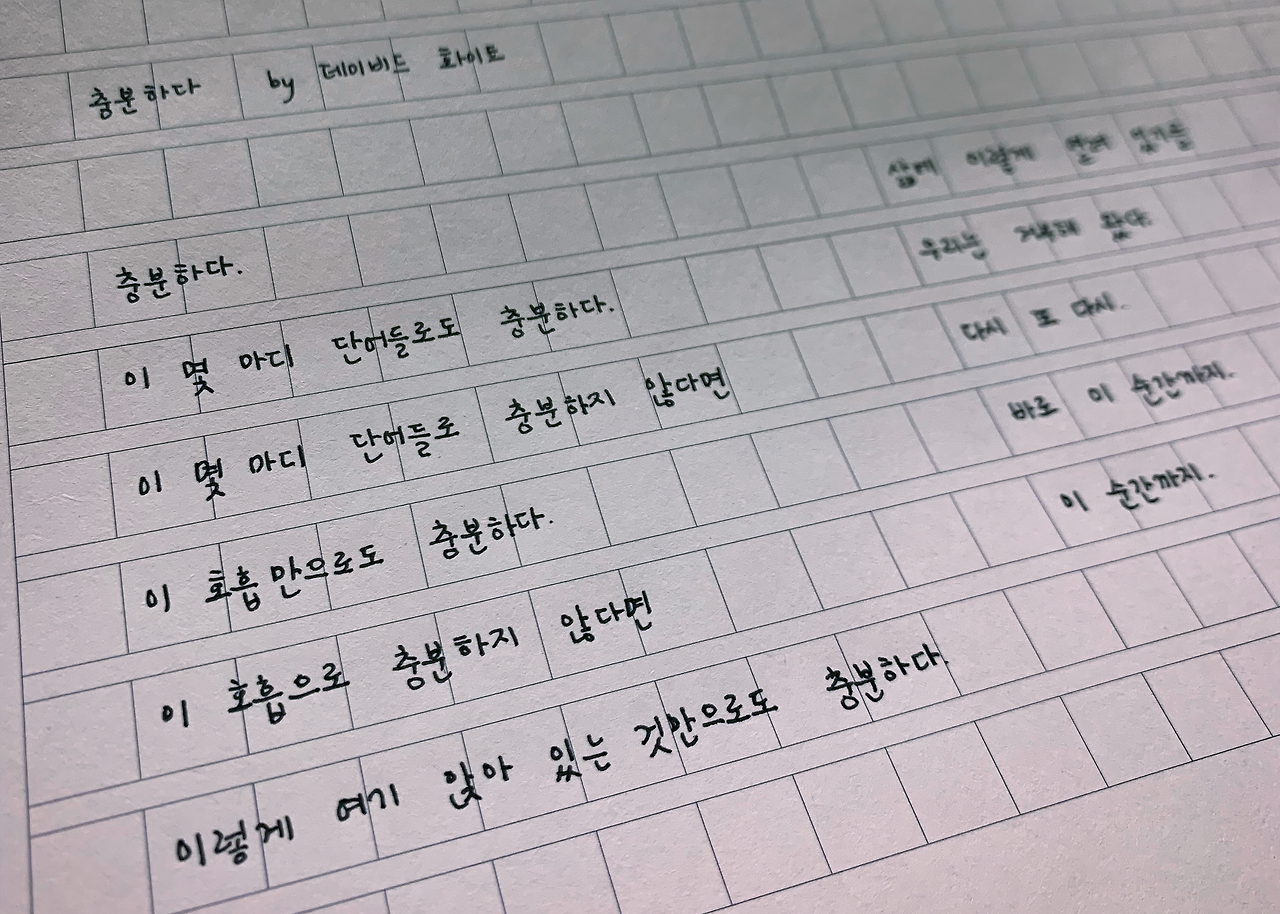 충분하다 by 데이비드 화이트
충분하다.
이 몇 마디 단어들로도 충분하다.
이 몇 마디 단어들로 충분하지 않다면
이 호흡만으로도 충분하다.
이 호흡으로 충분하지 않다면
이렇게 여기 앉아 있는 것만으로도 충분하다.
삶에 이렇게 열려 있기를
우리는 거부해 왔다.
다시 또 다시.
바로 이 순간까지.
이 순간까지.